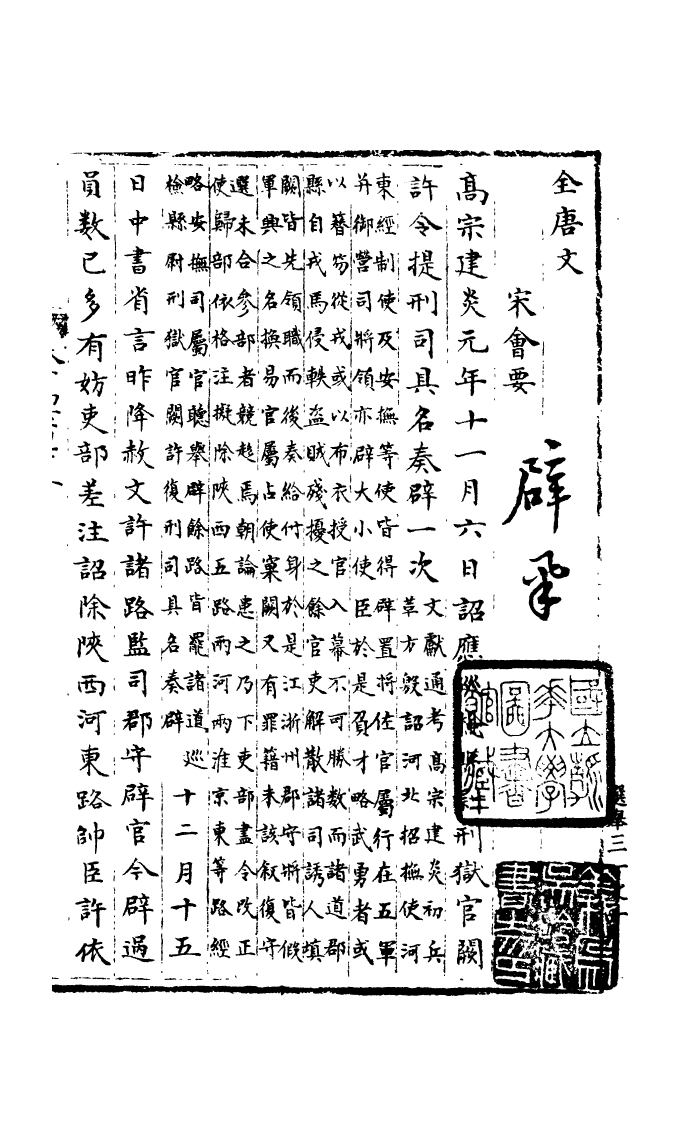 全唐文
宋會要
辟舉
高宗建炎元年十一月六日詔應巡檢縣尉刑獄官闕
許令提刑司具名奏辟一次
文獻通考高宗建炎初兵
草方殷詔河北招撫使河
東經制使及安撫等使皆得辟置將佐官屬行在五軍
并御營司將領亦辟大小使臣於是負才略武勇者或
以簪笏從戎或以布衣授官入幕不可勝數而諸道郡
縣自戎馬侵軼盜賊殘擾之餘官吏解散諸司誘人填
闕皆先領職而後奏給付身於是江浙州郡守將皆假
軍興之名換易官屬占使窠闕又有罪籍未該叙復守
選未合參部者競趨焉朝論患之乃下吏部盡令改正
使歸部依格注擬除陝西五路兩河兩淮京東等路經
略安撫司屬官聽舉辟餘路皆罷諸道巡
檢縣尉刑獄官闕許復刑司具名奏辟
十二月十五
日中書省言昨降赦文許諸路監司郡守辟官今辟過
員數已多有妨吏部差注詔除陝西河東路帥臣許依
選舉三